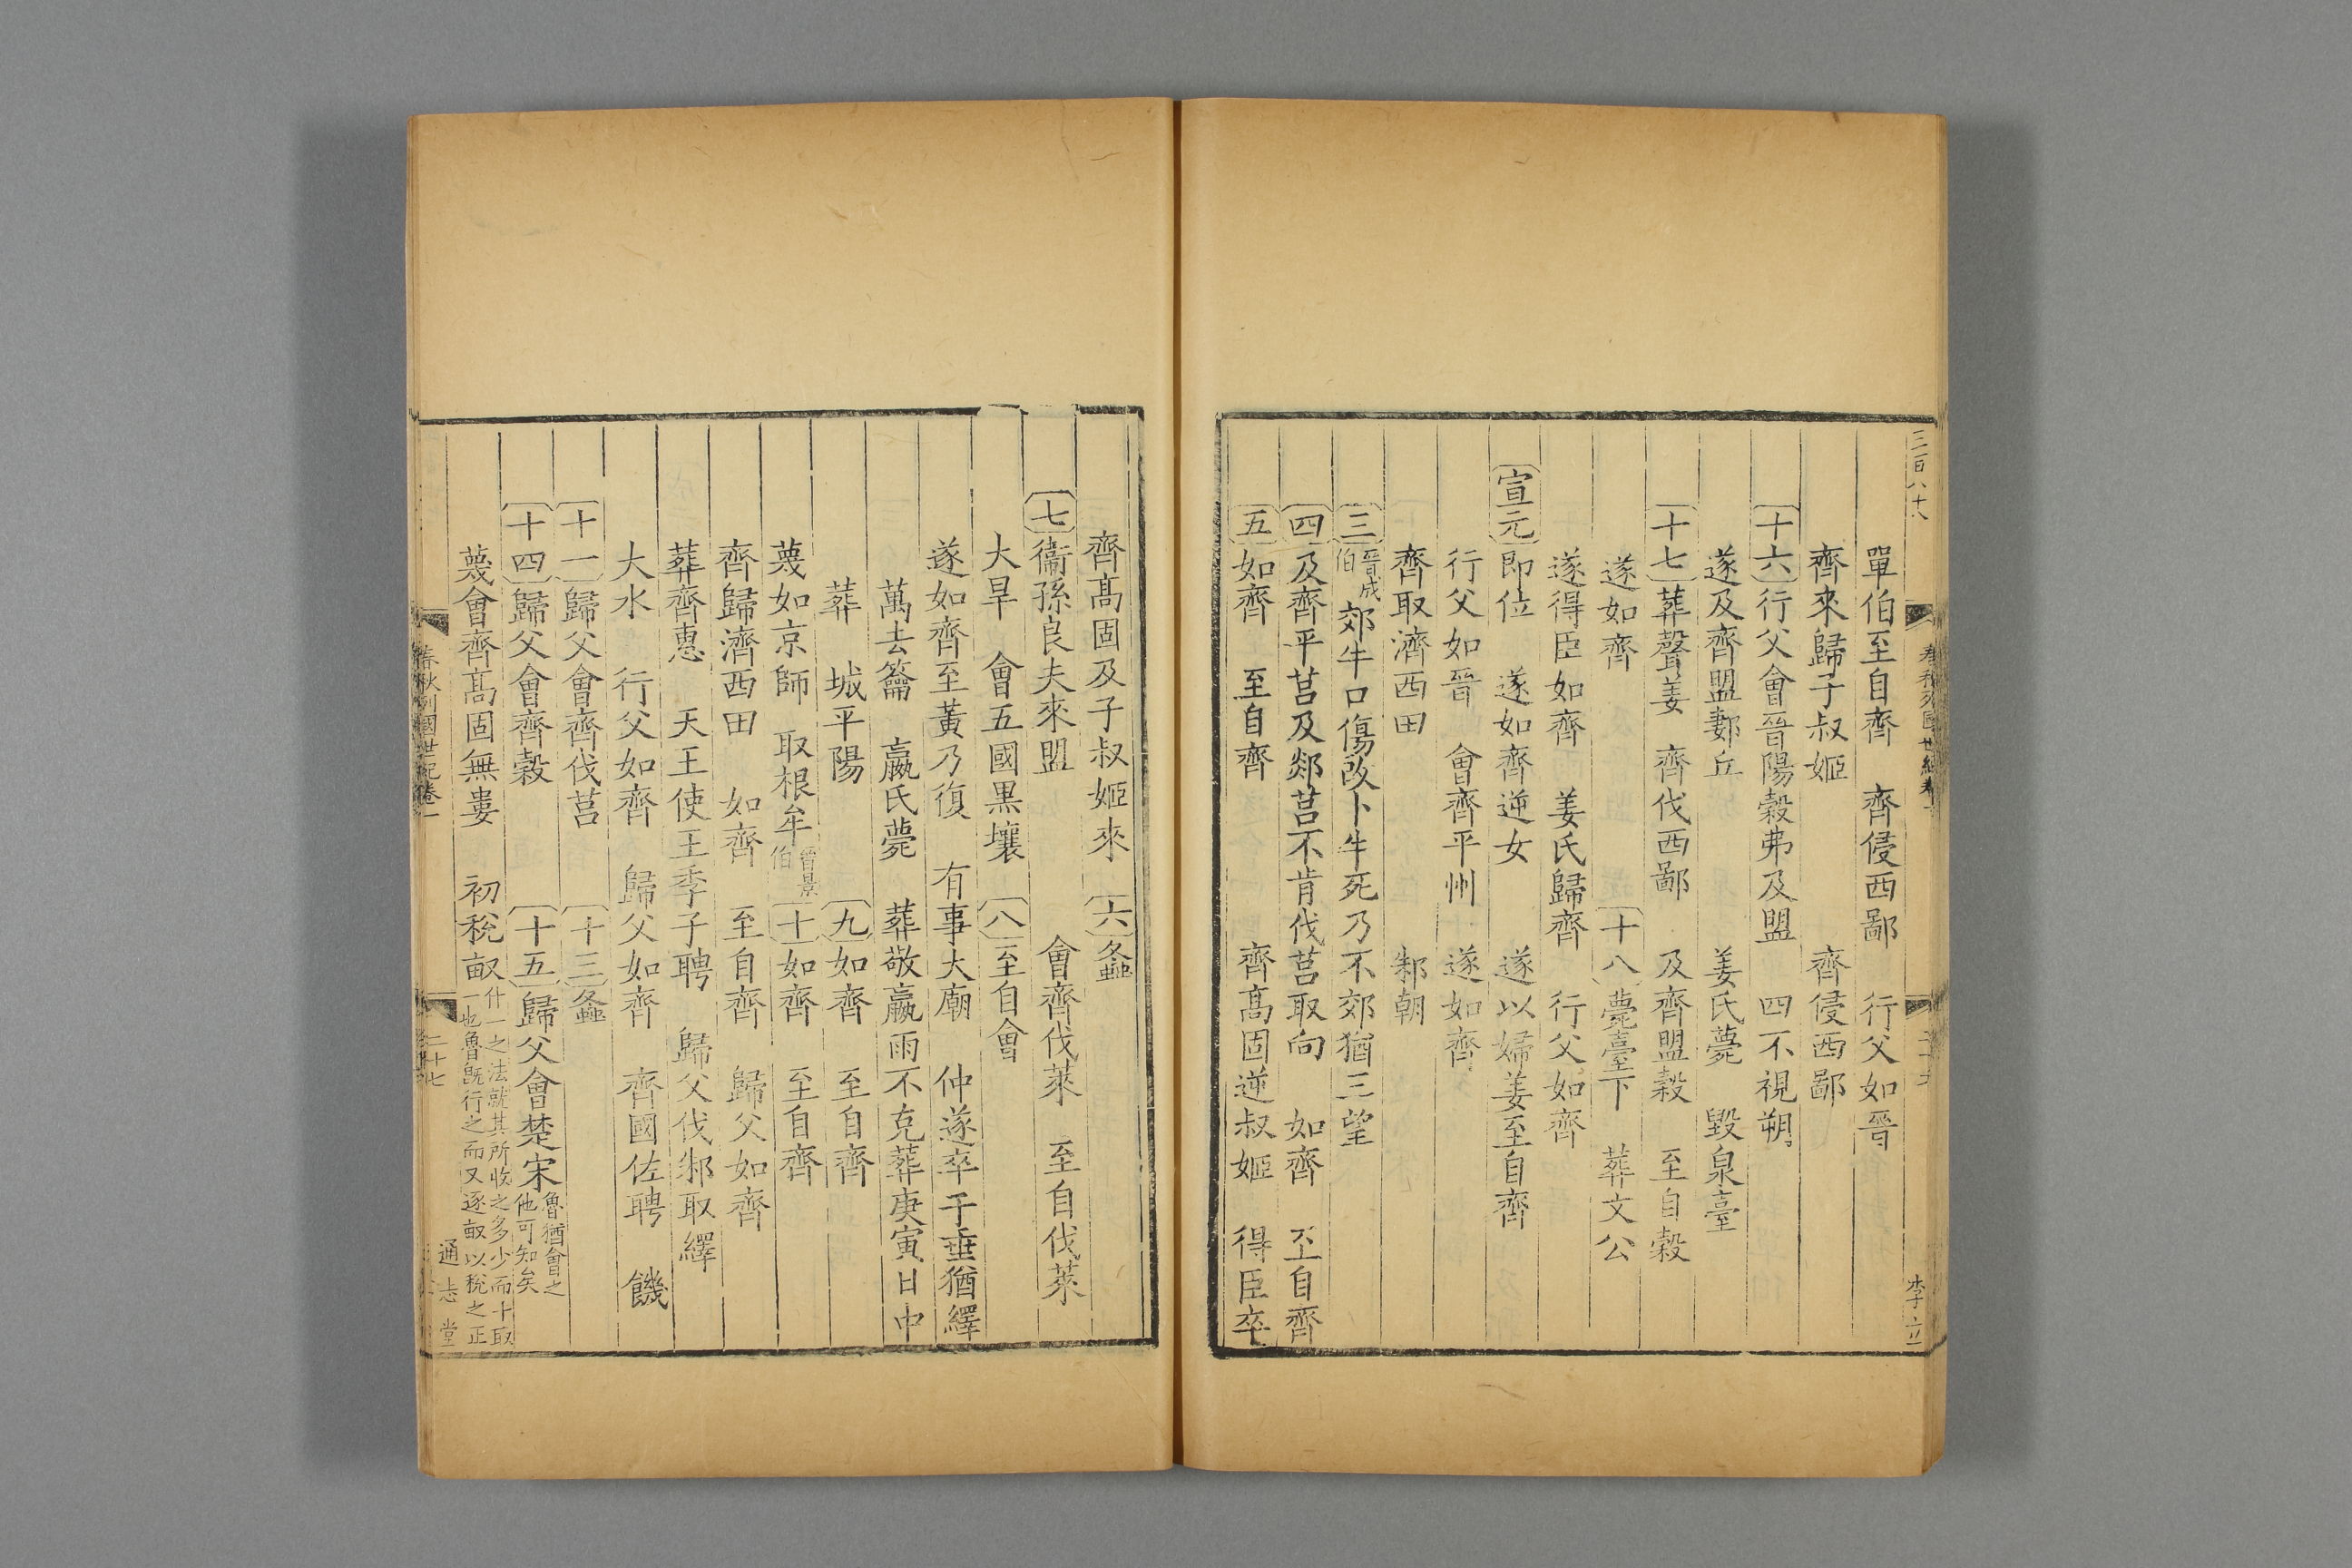 三百八十八
單伯至自齊　齊侵西鄙　行父如晉
齊來歸子叔姬　齊侵西鄙
十六行父會晉陽穀弗及盟　四不視朔
遂及齊盟郪丘　姜氏薨　毀泉臺
十七葬聲姜　齊伐西鄙　及齊盟穀　至自穀
遂如齊　十八薨臺下　葬文公
遂得臣如齊　姜氏歸齊　行父如齊
宣元即位　遂如齊逆女　遂以婦姜至自齊
行父如晉　會齊平州　遂如齊
齊取濟西田　邾朝
三晉成伯郊牛口傷改卜牛死乃不郊猶三望
四及齊平莒及郯莒不肯伐莒取向　如齊　至自齊
五如齊　至自齊　齊高固逆叔姬　得臣卒
李立
齊高固及子叔姬來　六螽
七衞孫良夫來盟　會齊伐萊　至自伐萊
大旱　會五國黑壤　八至自會
遂如齊至黃乃復　有事大廟　仲遂卒于垂猶繹
萬去籥　嬴氏薨　葬敬嬴雨不克葬庚寅日中
葬　城平陽　九如齊　至自齊
蔑如京師　取根牟晉景伯十如齊　至自齊
齊歸濟西田　如齊　至自齊　歸父如齊
葬齊惠　天王使王季子聘　歸父伐邾取繹
大水　行父如齊　歸父如齊　齊國佐聘　饑
十一歸父會齊伐莒　十三螽
十四歸父會齊穀　十五歸父會楚宋魯猶會之他可知矣
蔑會齊高固無婁　初稅畝什一之法就其所收之多少而十取一也魯既行之而又逐畝以稅之正
春秋列國世紀卷一　二十七　通志堂